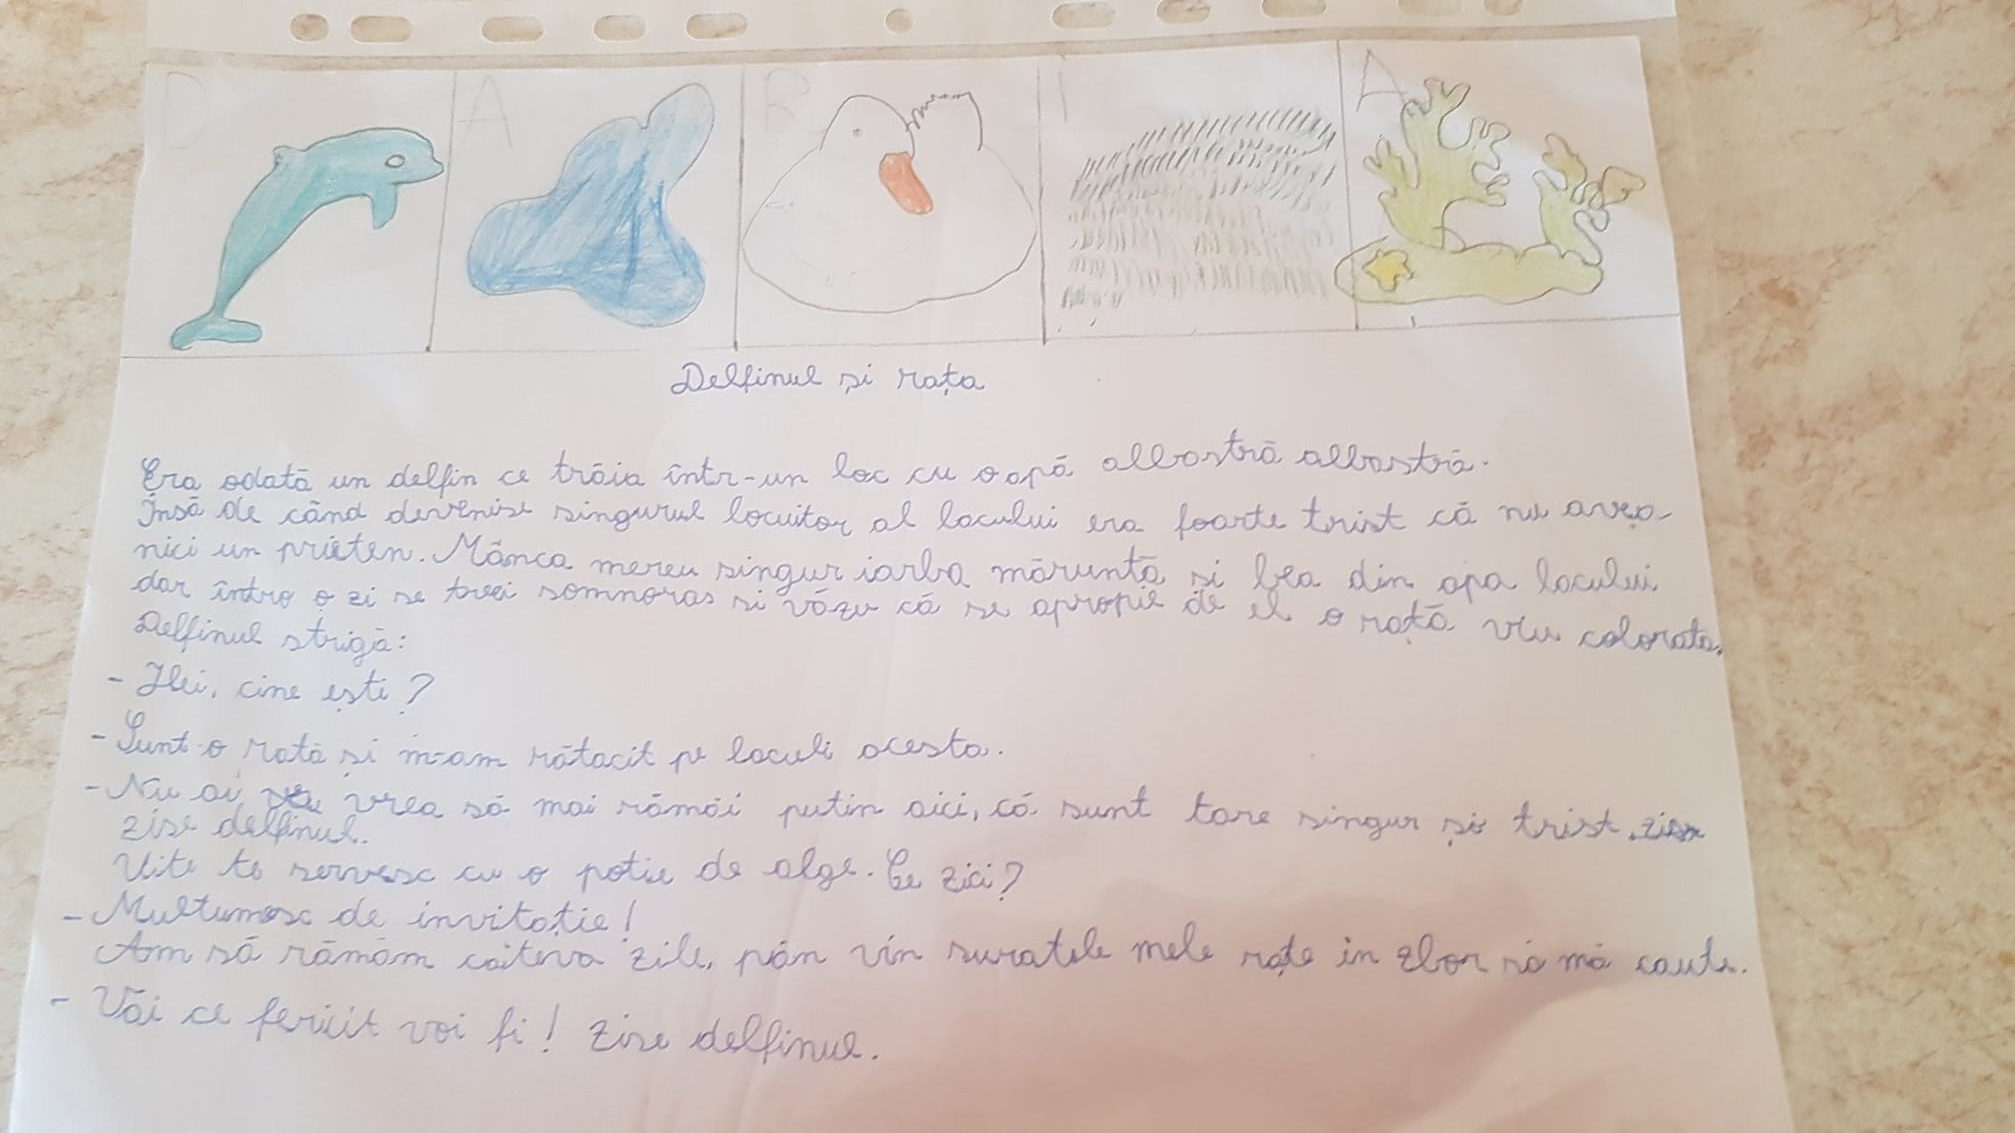 D A R I A
Delfinul și rața
Era odată un delfin ce trăia într-un loc cu o apă albastră albastră.
Însă de când devenise singurul locuitor al lacului era foarte trist că nu avea
nici un prieten. Mânca mereu singur iarba măruntă și bea din apa lacului
dar întro o zi se trezi somnoras si văzu că se apropie de el o rață viu colorata.
Delfinul strigă:
- Hei, cine ești?
- Sunt o rată și m-am rătacit pe lacul acesta.
- Nu ai vrea să mai rămâi putin aici, că sunt tare singur și trist,
zise delfinul.
Uite te servesc cu o poție de alge. Ce zici?
- Multumesc de invitație!
Am să rămăm caiteva zile, pân vin suratele mele rațe in zbor să mă caute.
- Văi ce fericit voi fi! Zise delfinul.